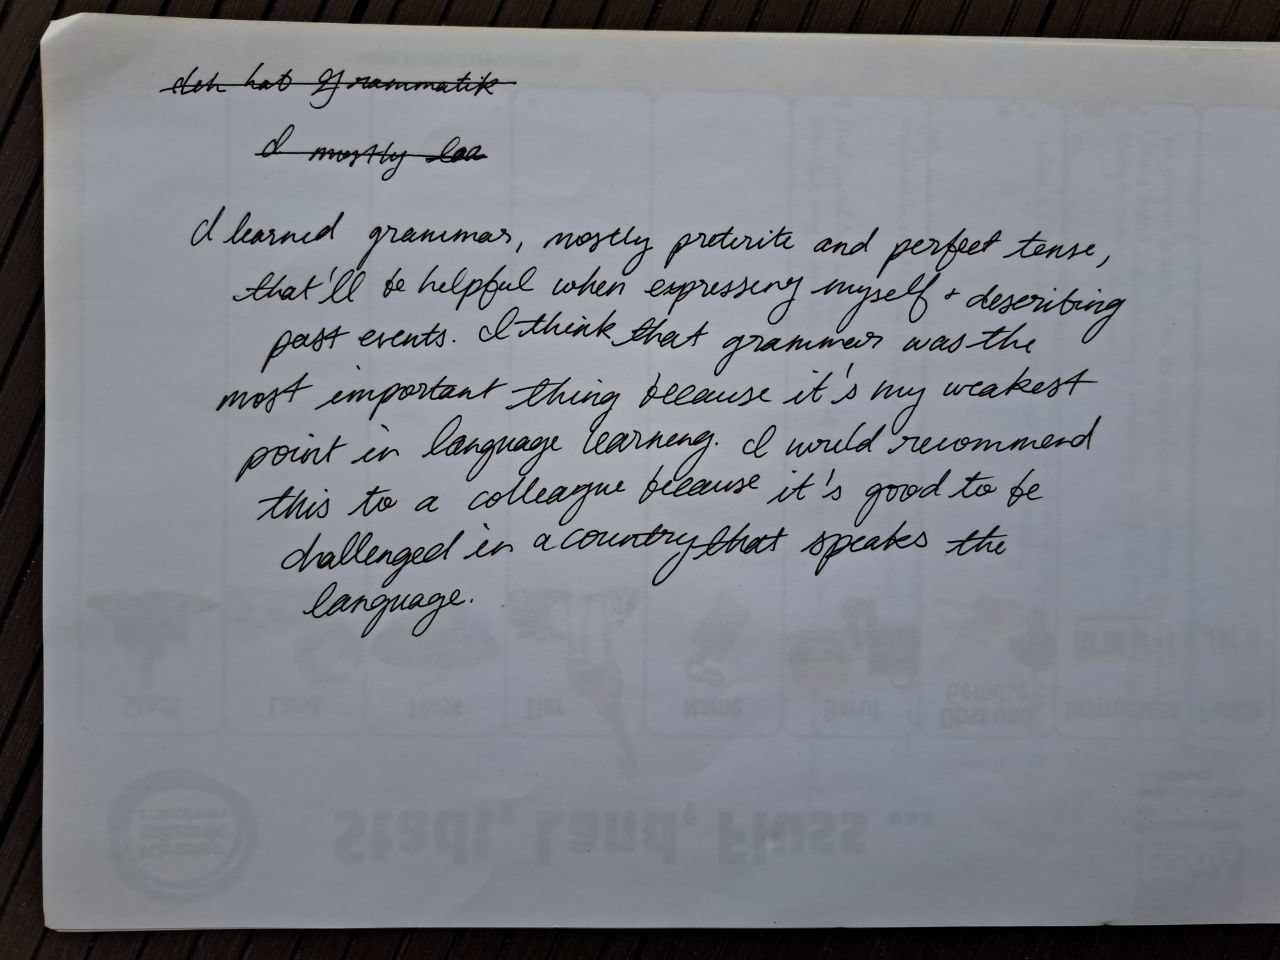 Ich hat Grammatik
I mostly lea
I learned grammar, mostly preterite and perfect tense,
that'll be helpful when expressing myself + describing
past events. I think that grammar was the
most important thing because it's my weakest
point in language learning. I would recommend
this to a colleague because it's good to be
challenged in a country that speaks the
language.
Stadt
Land
Fluss
Tier
Name
Beruf
Obst und
Gemüse
Instrument
Punkte
Stadt, Land, Fluss ...